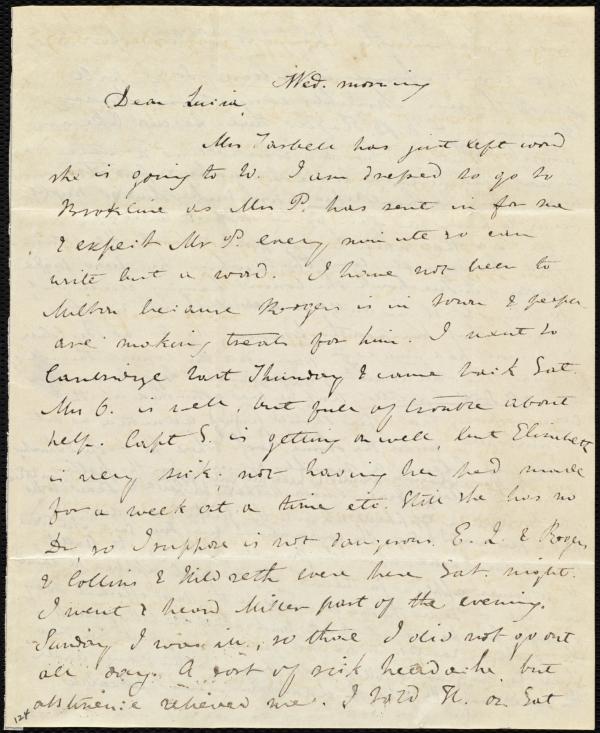 Wed. morning
Dear Lucia,
Mrs Tarbell has just left word
she is going to W. I am dressed to go to
Brookline as Mrs P. has sent in for me
& expect Mr P. every minute so can
write but a word. I have not been to
Milton because Rogers is in town & people
are making treats for him. I went to
Cambridge last Thursday & came back Sat.
Mrs C. is well, but full of trouble about
help. Capt S. is getting on well, but Elizabeth
is very sick, not having her bed made
for a week at a time etc. Still she has no
Dr, so I suppose is not dangerous. E. Q. & Rogers
& Collins & Hildreth were here Sat. night.
I went & heard Miller part of the evening.
Sunday I was ill, so that I did not go out
all day. A sort of sick headache, but
abstinence relieved me. I told H. on Sat
124